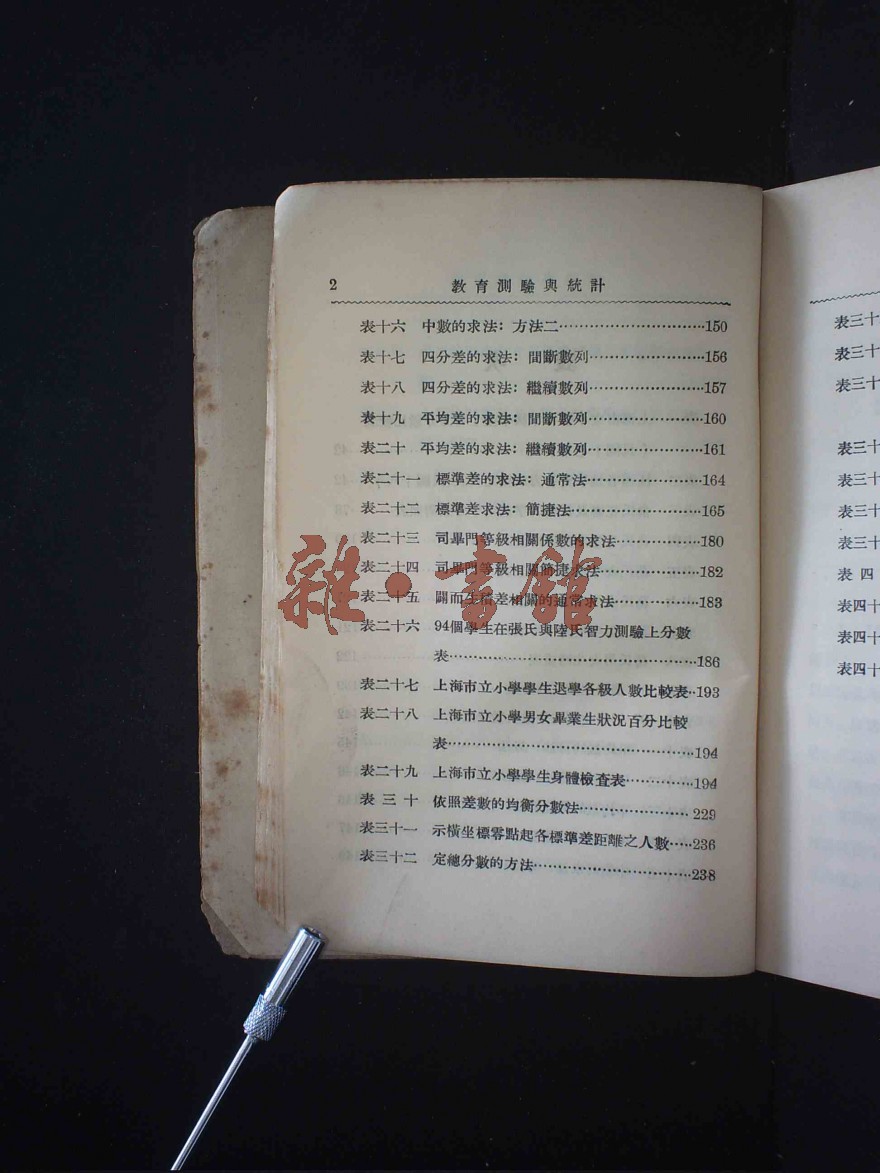 2 教育測驗與統計
表十六 中數的求法：方法二………………………150
表十七 四分差的求法：間斷數列…………………156
表十八 四分差的求法：繼續數列…………………157
表十九 平均差的求法：間斷數列…………………160
表二十 平均差的求法：繼續數列…………………161
表二十一 標準差的求法：通常法…………………164
表二十二 標準差求法：簡捷法……………………165
表二十三 司畢門等級相關係數的求法……………180
表二十四 司畢門等級相關簡捷求法………………182
表二十五 闢而生積差相關的通常求法……………183
表二十六 94個學生在張氏與陸氏智力測驗上分數
表………………………………………186
表二十七 上海市立小學學生退學各級人數比較表‥193
表二十八 上海市立小學男女畢業生狀況百分比較
表………………………………………194
表二十九 上海市立小學學生身體檢查表…………194
表三十 依照差數的均衡分數法……………………229
表三十一 示橫坐標零點起各標準差距離之人數……236
表三十二 定總分數的方法…………………………238
雜·書館
表三十
表三十
表三十
表三十
表三十
表三十
表三十
表四
表四十
表四十
表四十